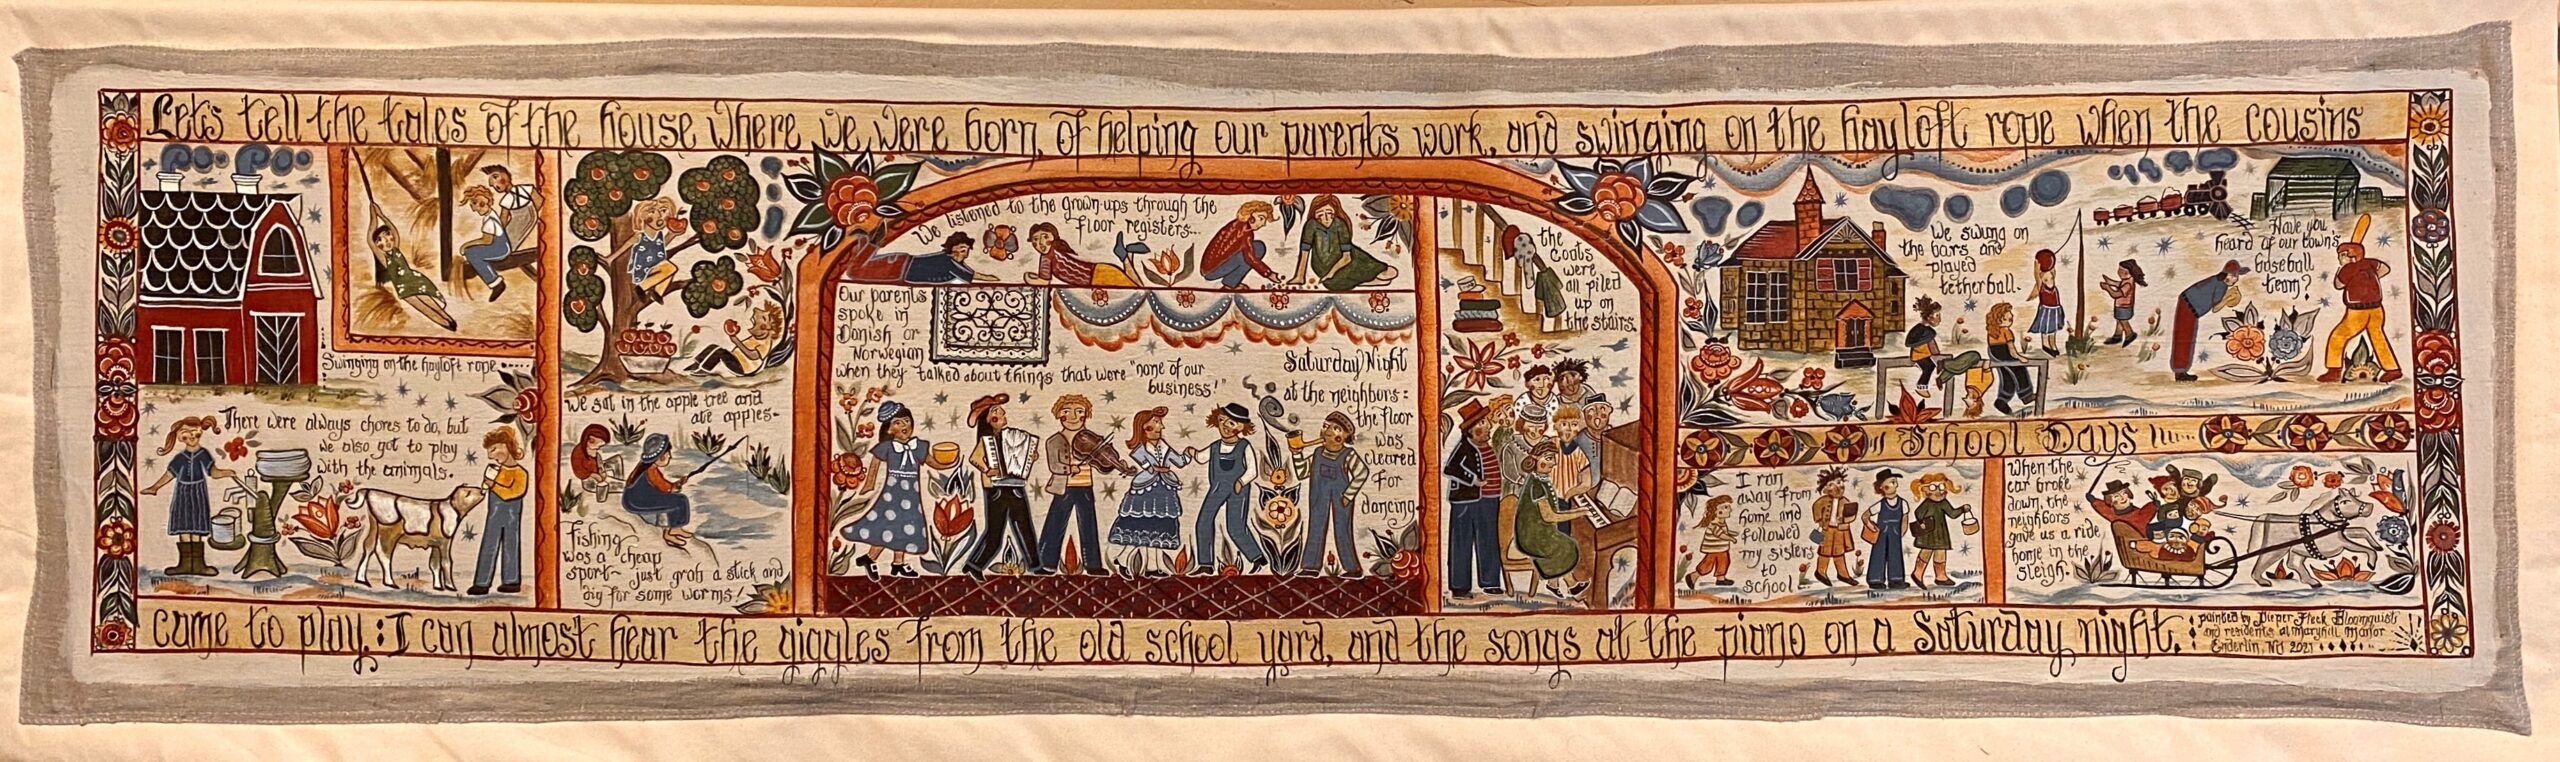 Let's tell the tales of the house where we were born, of helping our parents work, and swinging on the hayloft rope when the cousins
Swinging on the hayloft rope.....
There were always chores to do, but
we also got to play
with the animals.
We sat in the apple tree and
ate apples-
Fishing
was a cheap
sport~ just grab a stick and
dig for some worms!
We listened to the grown-ups through the
floor registers...
Our parents
spoke in
Danish or
Norwegian
when they talked about things that were "none of our
business!"
Saturday Night
at the neighbors:
the floor
was
cleared
for
dancing.
the
coats
were
all piled
up on
the stairs.
We swung on
the bars and
played
tetherball.
Have you
heard of our town's
baseball
team?
School Days
I ran
away from
home and
followed
my sisters
to
school
When the
car broke
down, the
neighbors
gave us a ride
home in the
sleigh.
came to play.: I can almost hear the giggles from the old school yard, and the songs at the piano on a Saturday night.
painted by Pieper Fleck Bloomquist
and residents at Maryhill Manor
Enderlin, ND 2021